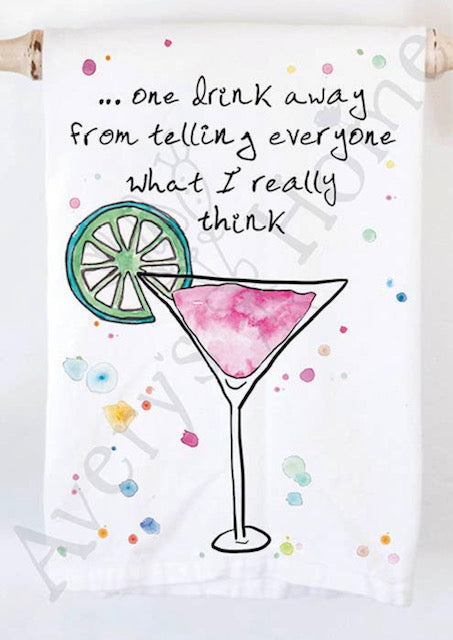 ... one drink away
from telling everyone
what I really
think
Avery's Home